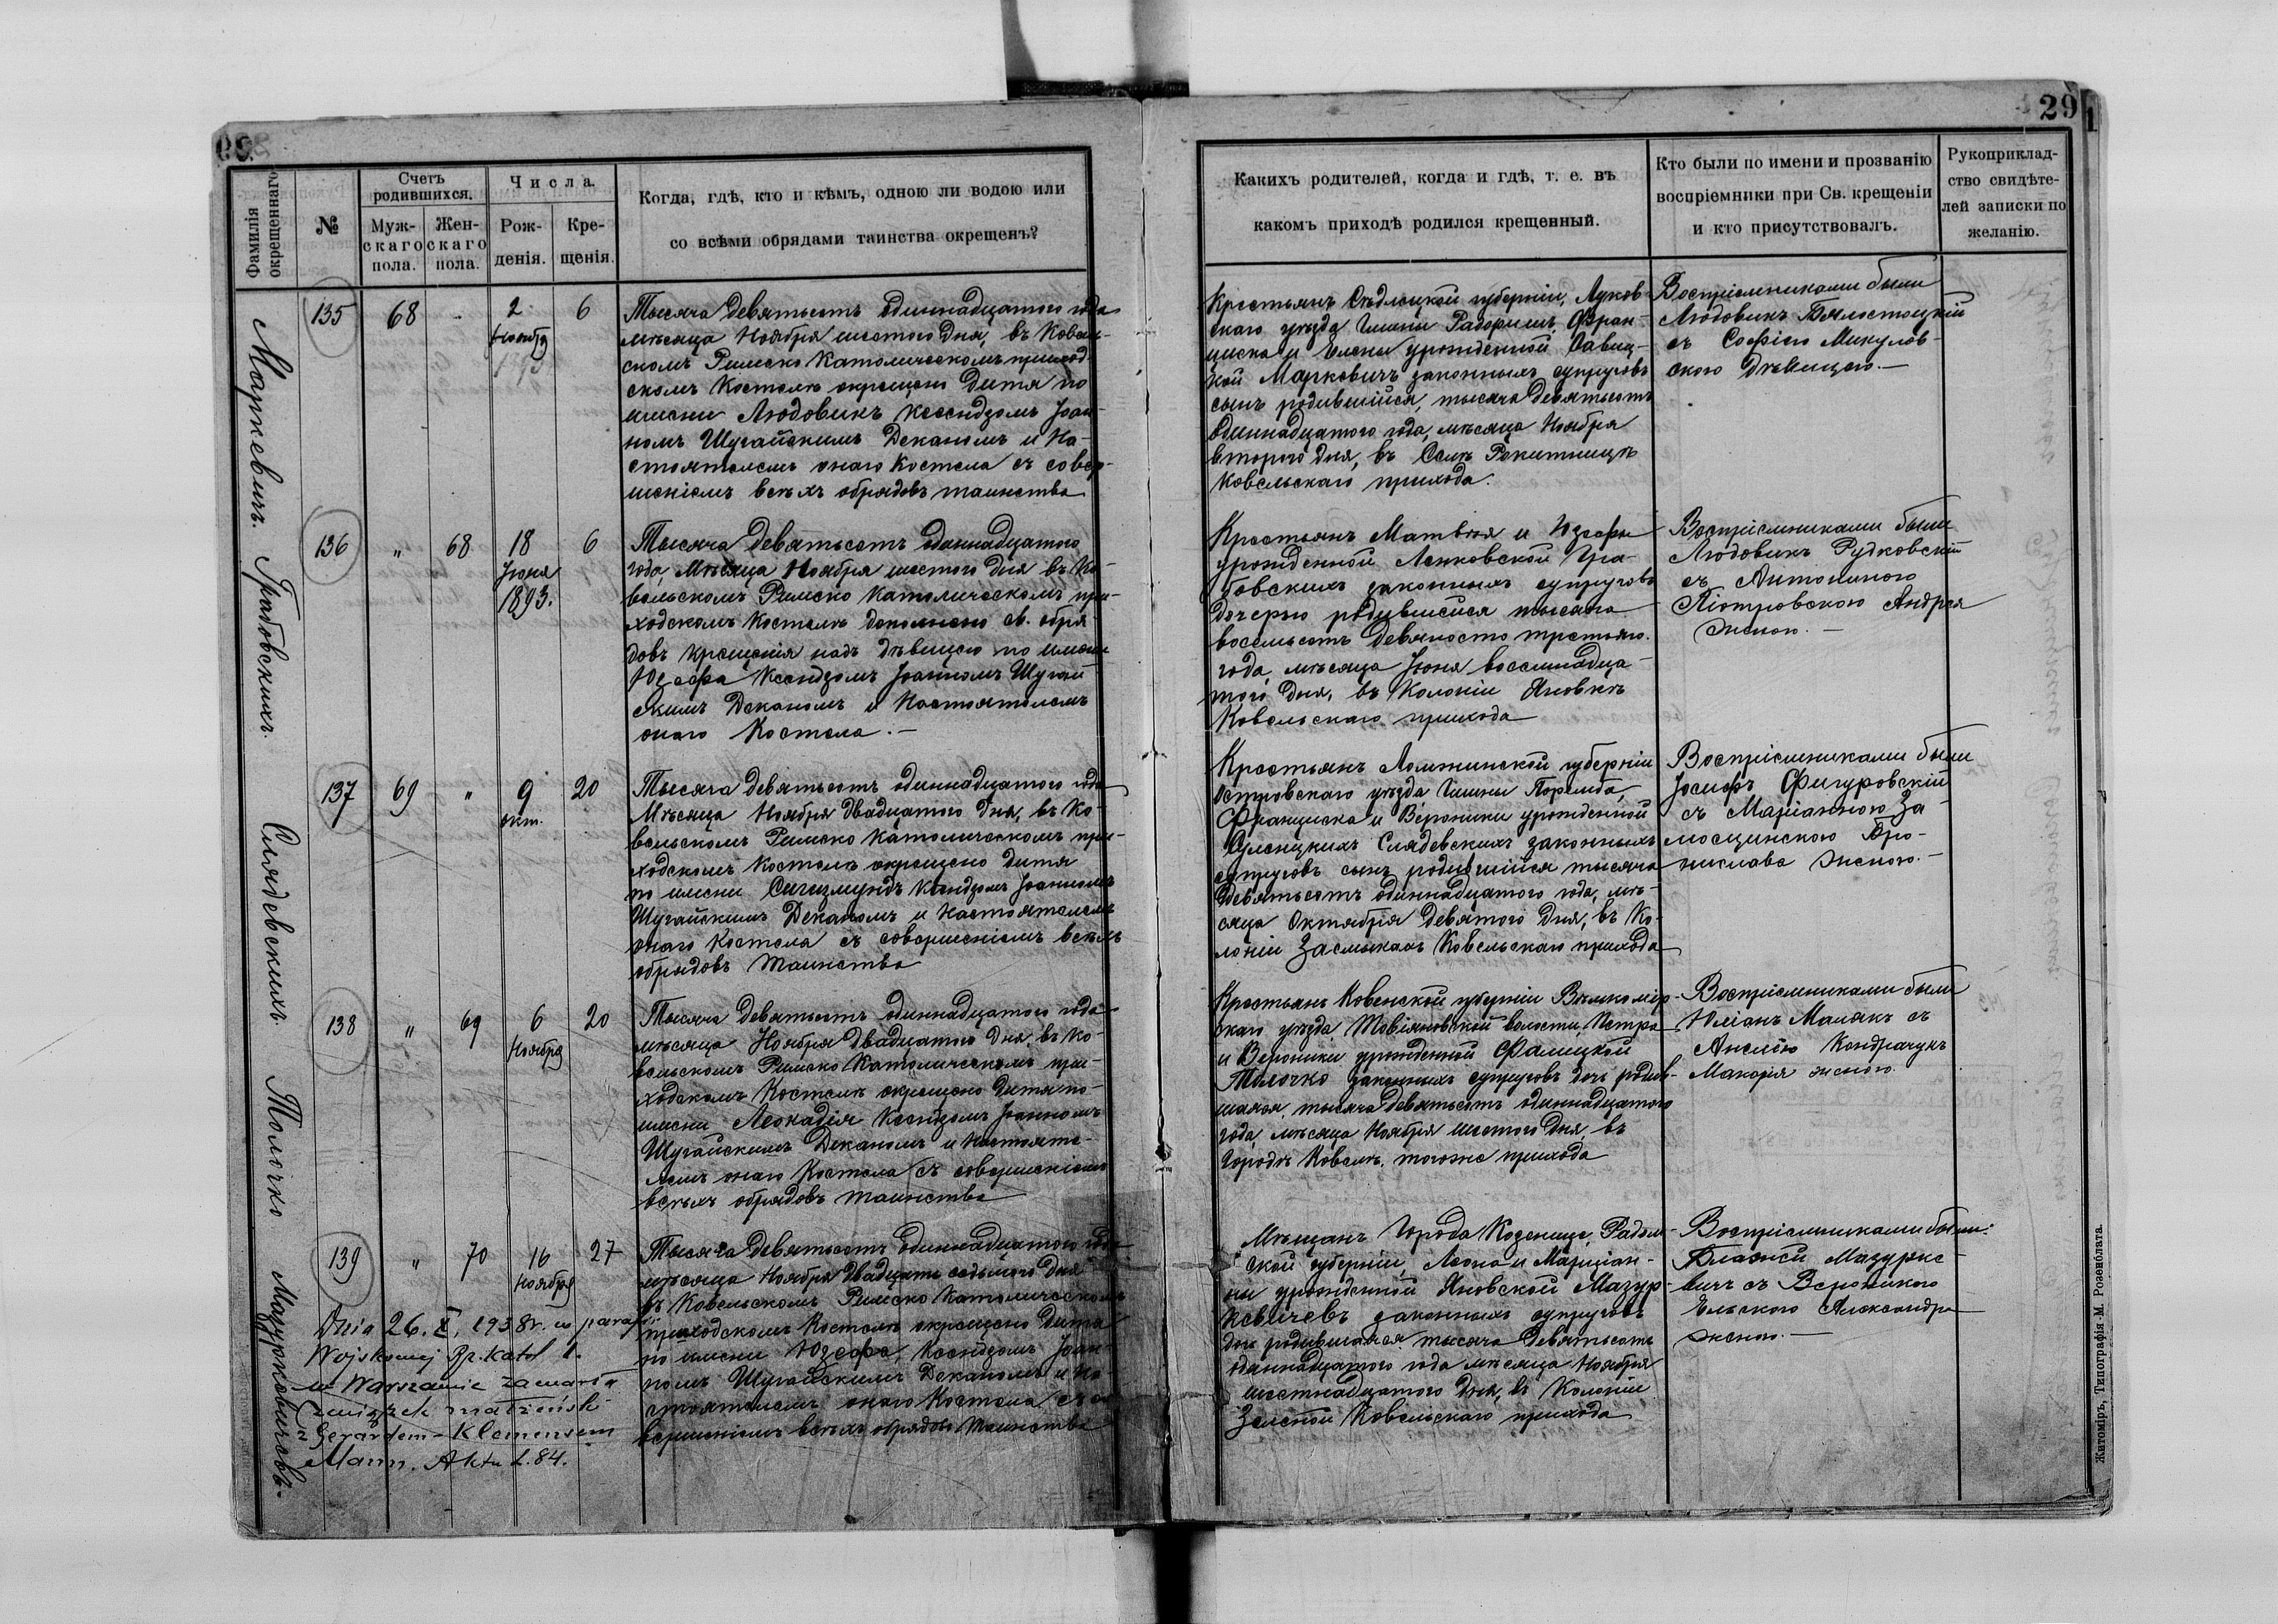 29
Фамилія окрещеннаго
№
Счетъ родившихся.
Мужскаго пола.
Женскаго пола.
Числа.
Рожденія.
Крещенія.
Когда, гдѣ, кто и кѣмъ, одною ли водою или
со всѣми обрядами таинства окрещенъ?
Какихъ родителей, когда и гдѣ, т. е. въ
какомъ приходѣ родился крещенный.
Кто были по имени и прозванію
воспріемники при Св. крещеніи
и кто присутствовалъ.
Рукоприклад-
ство свидѣте-
лей записки по
желанію.
Маркевичъ.
135
68
2
Ноября
6
Тысяча девятьсотъ одиннадцатого года
мѣсяца Ноября шестого дня, въ Ковель-
скомъ Римско Католическомъ приход-
скомъ Костелѣ окрещено дитя по
имени Людовикъ Ксендзомъ Іоан-
номъ Шугайскимъ Деканомъ и На-
стоятелемъ онаго Костела съ совер-
шеніемъ всѣхъ обрядовъ таинства
Крестьянъ Сѣдлецкой губерніи, Луков-
скаго уѣзда Гмины Радорыжъ, Фран-
циска и Елены урожденной Савиц-
кой Марковичъ законныхъ супруговъ
сынъ родившійся, тысяча девятьсотъ
одиннадцатого года, мѣсяца Ноября
второго дня, въ Селѣ Рокитницѣ
Ковельскаго прихода.
Воспріемниками были
Людовикъ Бялостоцкій
съ Софіею Микулов-
скою дѣвицею.—
Грабовскихъ.
136
"
68
18
Іюня
1893.
6
Тысяча девятьсотъ одиннадцатого
года, мѣсяца Ноября шестого дня въ Ко-
вельскомъ Римско Католическомъ при-
ходскомъ Костелѣ дополнено св. обря-
довъ крещенія надъ дѣвицею по имени
Юзефа Ксендзомъ Іоанномъ Шугай-
скимъ Деканомъ и Настоятелемъ
онаго Костела.—
Крестьянъ Матвѣя и Юзефы
урожденной Ленковской Гра-
бовскихъ законныхъ супруговъ
дочерью родившейся тысяча
восемьсотъ девяносто третьяго
года, мѣсяца Іюня восемнадца-
того дня, въ Колоніи Яновкѣ
Ковельскаго прихода
Воспріемниками были
Людовикъ Рудковскій
съ Антониною
Піотровскою Андрея
женою.—
Слядевскихъ.
137
69
"
9
окт.
20
Тысяча девятьсотъ одиннадцатого года
Мѣсяца Ноября двадцатого дня, въ Ко-
вельскомъ Римско Католическомъ при-
ходскомъ Костелѣ окрещено дитя
по имени Сигизмундъ Ксендзомъ Іоанномъ
Шугайскимъ Деканомъ и Настоятелемъ
онаго Костела съ совершеніемъ всѣхъ
обрядовъ таинства
Крестьянъ Ломжинской губерніи
Островскаго уѣзда Гмины Поремба,
Франциска и Вероники урожденной
Суленцкихъ Слядевскихъ законныхъ
супруговъ сынъ родившійся тысяча
девятьсотъ одиннадцатого года, мѣ-
сяца Октября девятого дня, въ Ко-
лоніи Засмыкахъ Ковельскаго прихода
Воспріемниками были
Іосифъ Фигуровскій
съ Маріанною За-
мосцинскою Бро-
нислава женою.—
Толочко
138
"
69
6
Ноября
20
Тысяча девятьсотъ одиннадцатого года
мѣсяца Ноября двадцатого дня, въ Ко-
вельскомъ Римско Католическомъ при-
ходскомъ Костелѣ окрещено дитя по
имени Леокадія Ксендзомъ Іоанномъ
Шугайскимъ Деканомъ и Настояте-
лемъ онаго Костела съ совершеніемъ
всѣхъ обрядовъ таинства
Крестьянъ Ковенской губерніи Вилкомір-
скаго уѣзда, Товіяновской волости, Петра
и Вероники урожденной Фалицкой
Толочко законныхъ супруговъ дочь родив-
шаяся, тысяча девятьсотъ одиннадцатого
года, мѣсяца Ноября шестого дня, въ
Городѣ Ковелѣ, тогоже прихода
Воспріемниками были
Юліанъ Малякъ съ
Анелею Кондрачукъ
Макарія женою.
Мазуркевичевъ.
139
"
70
16
Ноября
27
Тысяча девятьсотъ одиннадцатого года
мѣсяца Ноября двадцать седьмого дня
въ Ковельскомъ Римско Католическомъ
приходскомъ Костелѣ окрещено дитя
по имени Юзефа, Ксендзомъ Іоан-
номъ Шугайскимъ Деканомъ и На-
стоятелемъ онаго Костела съ со-
вершеніемъ всѣхъ обрядовъ таинства
Dnia 26.X.1938r. w parafji
Wojskowej Rz. Katol.
w Warszawie zawarła
związek małżeński
z Gerardem-Klemensem
Mann. Akt L.84.
Мѣщанъ Города Козеницъ, Радом-
ской губерніи, Леона и Маріан-
ны урожденной Яновской Мазур-
кевичевъ законныхъ супруговъ
дочь родившаяся тысяча девятьсотъ
одиннадцатого года мѣсяца Ноября
шестнадцатого дня, въ Колоніи
Зеленой Ковельскаго прихода
Воспріемниками были:
Блажей Мазурке-
вичъ съ Вероникою
Ельскою Александра
женою.—
Житоміръ, Типографія М. Розенблата.